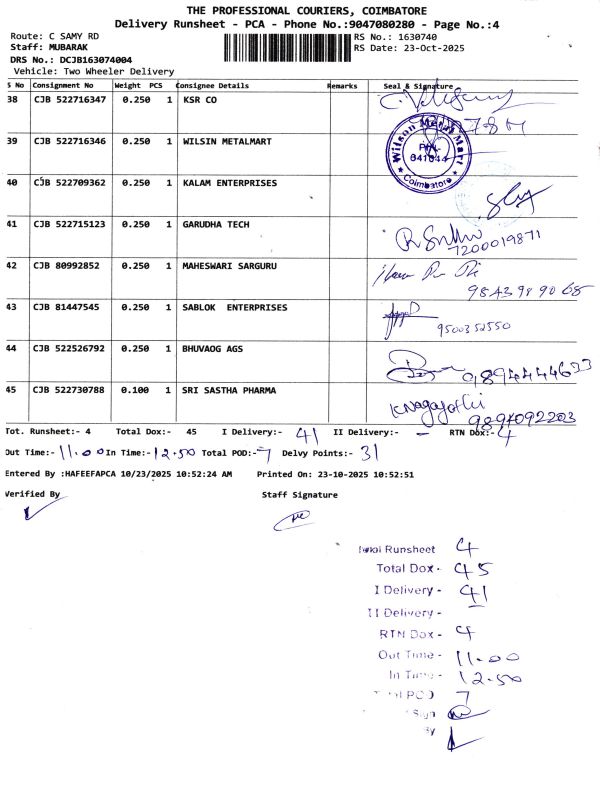 THE PROFESSIONAL COURIERS, COIMBATORE
Delivery Runsheet - PCA - Phone No.:9047080280 - Page No.:4
Route: C SAMY RD
RS No.: 1630740
Staff: MUBARAK
RS Date: 23-Oct-2025
DRS No.: DCJB163074004
Vehicle: Two Wheeler Delivery
S No Consignment No Weight PCS Consignee Details Remarks Seal & Signature
38 CJB 522716347 0.250 1 KSR CO
39 CJB 522716346 0.250 1 WILSIN METALMART
Wilson Metal Mart
Coimbatore
40 CJB 522709362 0.250 1 KALAM ENTERPRISES
41 CJB 522715123 0.250 1 GARUDHA TECH
7200019871
42 CJB 80992852 0.250 1 MAHESWARI SARGURU
98439 89068
43 CJB 81447545 0.250 1 SABLOK ENTERPRISES
9500352550
44 CJB 522526792 0.250 1 BHUVAOG AGS
9894444633
45 CJB 522730788 0.100 1 SRI SASTHA PHARMA
9894092203
Tot. Runsheet:- 4 Total Dox:- 45 I Delivery:- 41 II Delivery:- - RTN Dox:- 4
Out Time:- 11.00 In Time:- 12.50 Total POD:- 7 Delvy Points:- 31
Entered By :HAFEEFAPCA 10/23/2025 10:52:24 AM Printed On: 23-10-2025 10:52:51
Verified By Staff Signature
Total Runsheet 4
Total Dox - 45
I Delivery - 41
II Delivery -
RTN Dox - 4
Out Time - 11.00
In Time - 12.50
Total POD 7
Sign
By